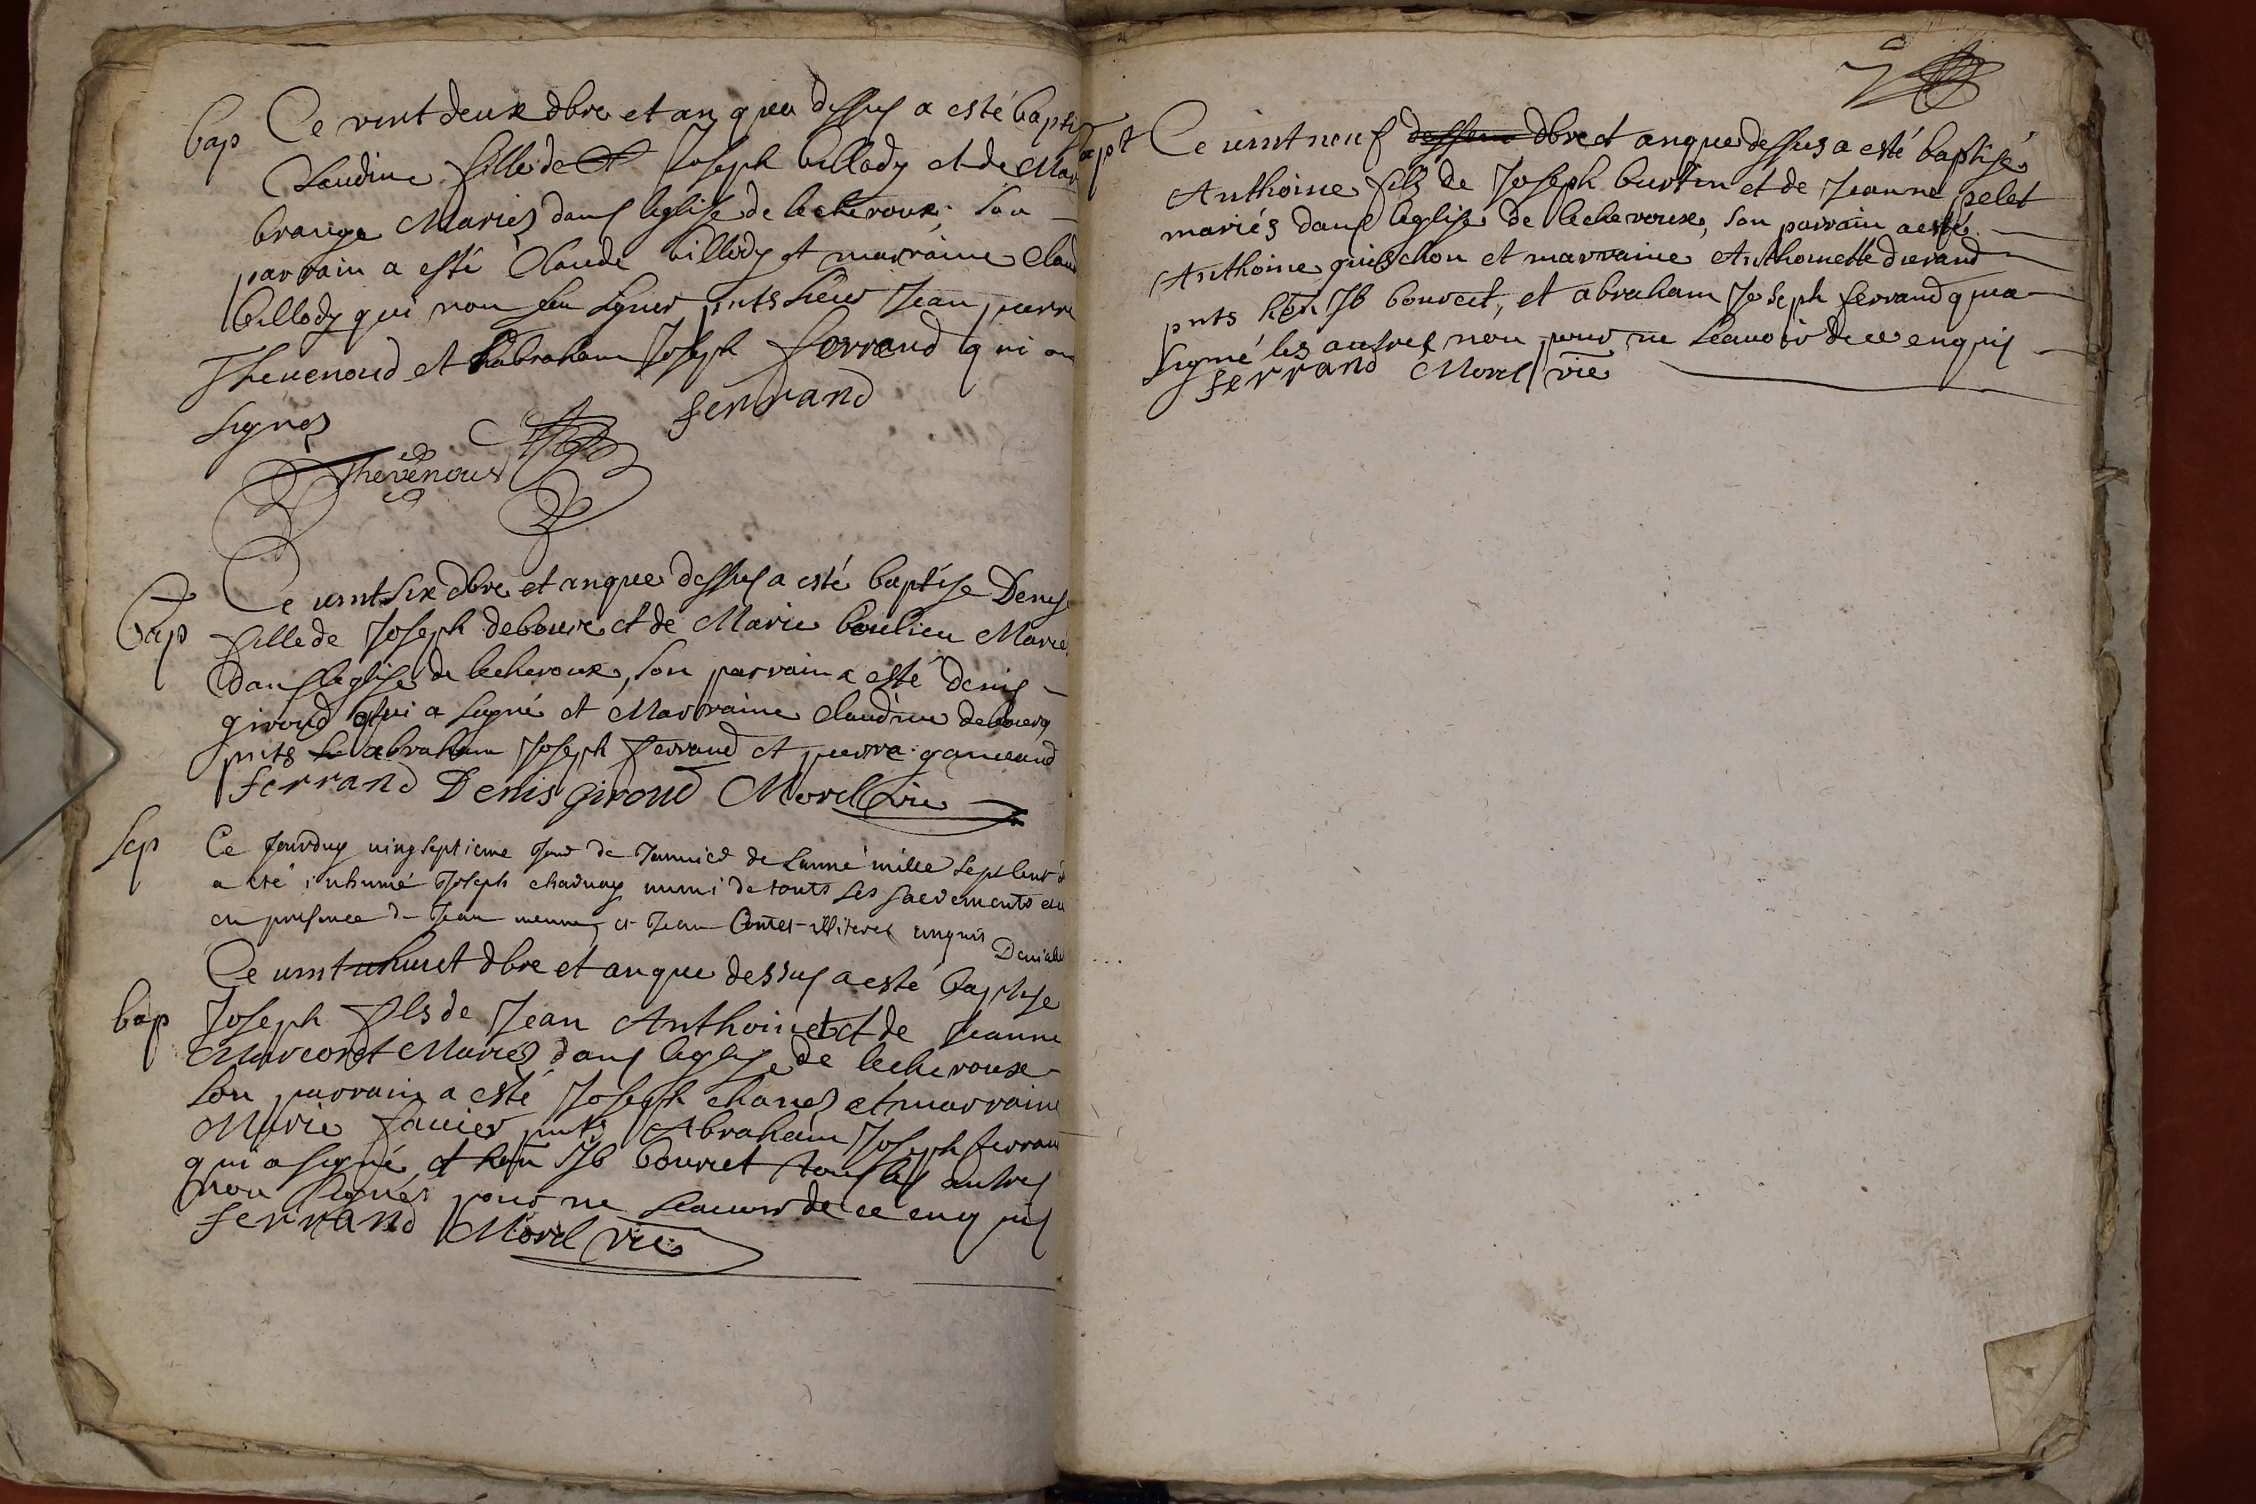 bap Ce vint deux dbre et an que dessus a esté baptis
Claudine fille de Joseph billody et de Mar
brange Mariez dans leglise de lecheroux, son
parrain a esté Claude billody et marraine Claud
billody qui non sceu signer pnts sieur Jean pierre
Thevenoud et abraham Joseph ferrand qui on
signez
ferrand
Thevenoud
bap Ce vint six dbre et an que dessus a esté baptise Denyse
fille de Joseph debourg et de Marie boulieu Mariés
dans leglise de lecheroux, son parrain a esté denis
giroud qui a signé et Marraine Claudine debourg
pnts abraham Joseph ferrand et pierre ganeand
ferrand Denis giroud Morel vic
sep Ce jourduy vingseptieme jour de Janvier de Lanné mille sept cent
a eté inhumé Joseph charnay muni de touts ses sacrements
en presence de Jean et Jean Comtet illiteres enquis
Ce vint huict dbre et an que dessus a esté baptise
bap Joseph fils de Jean Anthoinet et de Jeanne
Marcoret Mariéz dans leglise de lecheroux
son parrain a esté Joseph chanel et marraine
Marie favier pnts Abraham Joseph ferrand
qui a signé et hon JB bouvet tous les autres
non signés pour ne scauoir de ce enquis
ferrand Morel vic
7
bapt Ce vint neuf dbre et an que dessus a esté baptisé
Anthoine fils de Joseph burtin et de Jeanne pelet
mariés dans leglise de lecheroux, son parrain a esté
Anthoine guischon et marraine Anthoinette durand
pnts hon JB bouvet, et abraham Joseph ferrand qui a
signé les autres non pour ne scauoir de ce enquis
ferrand Morel vic